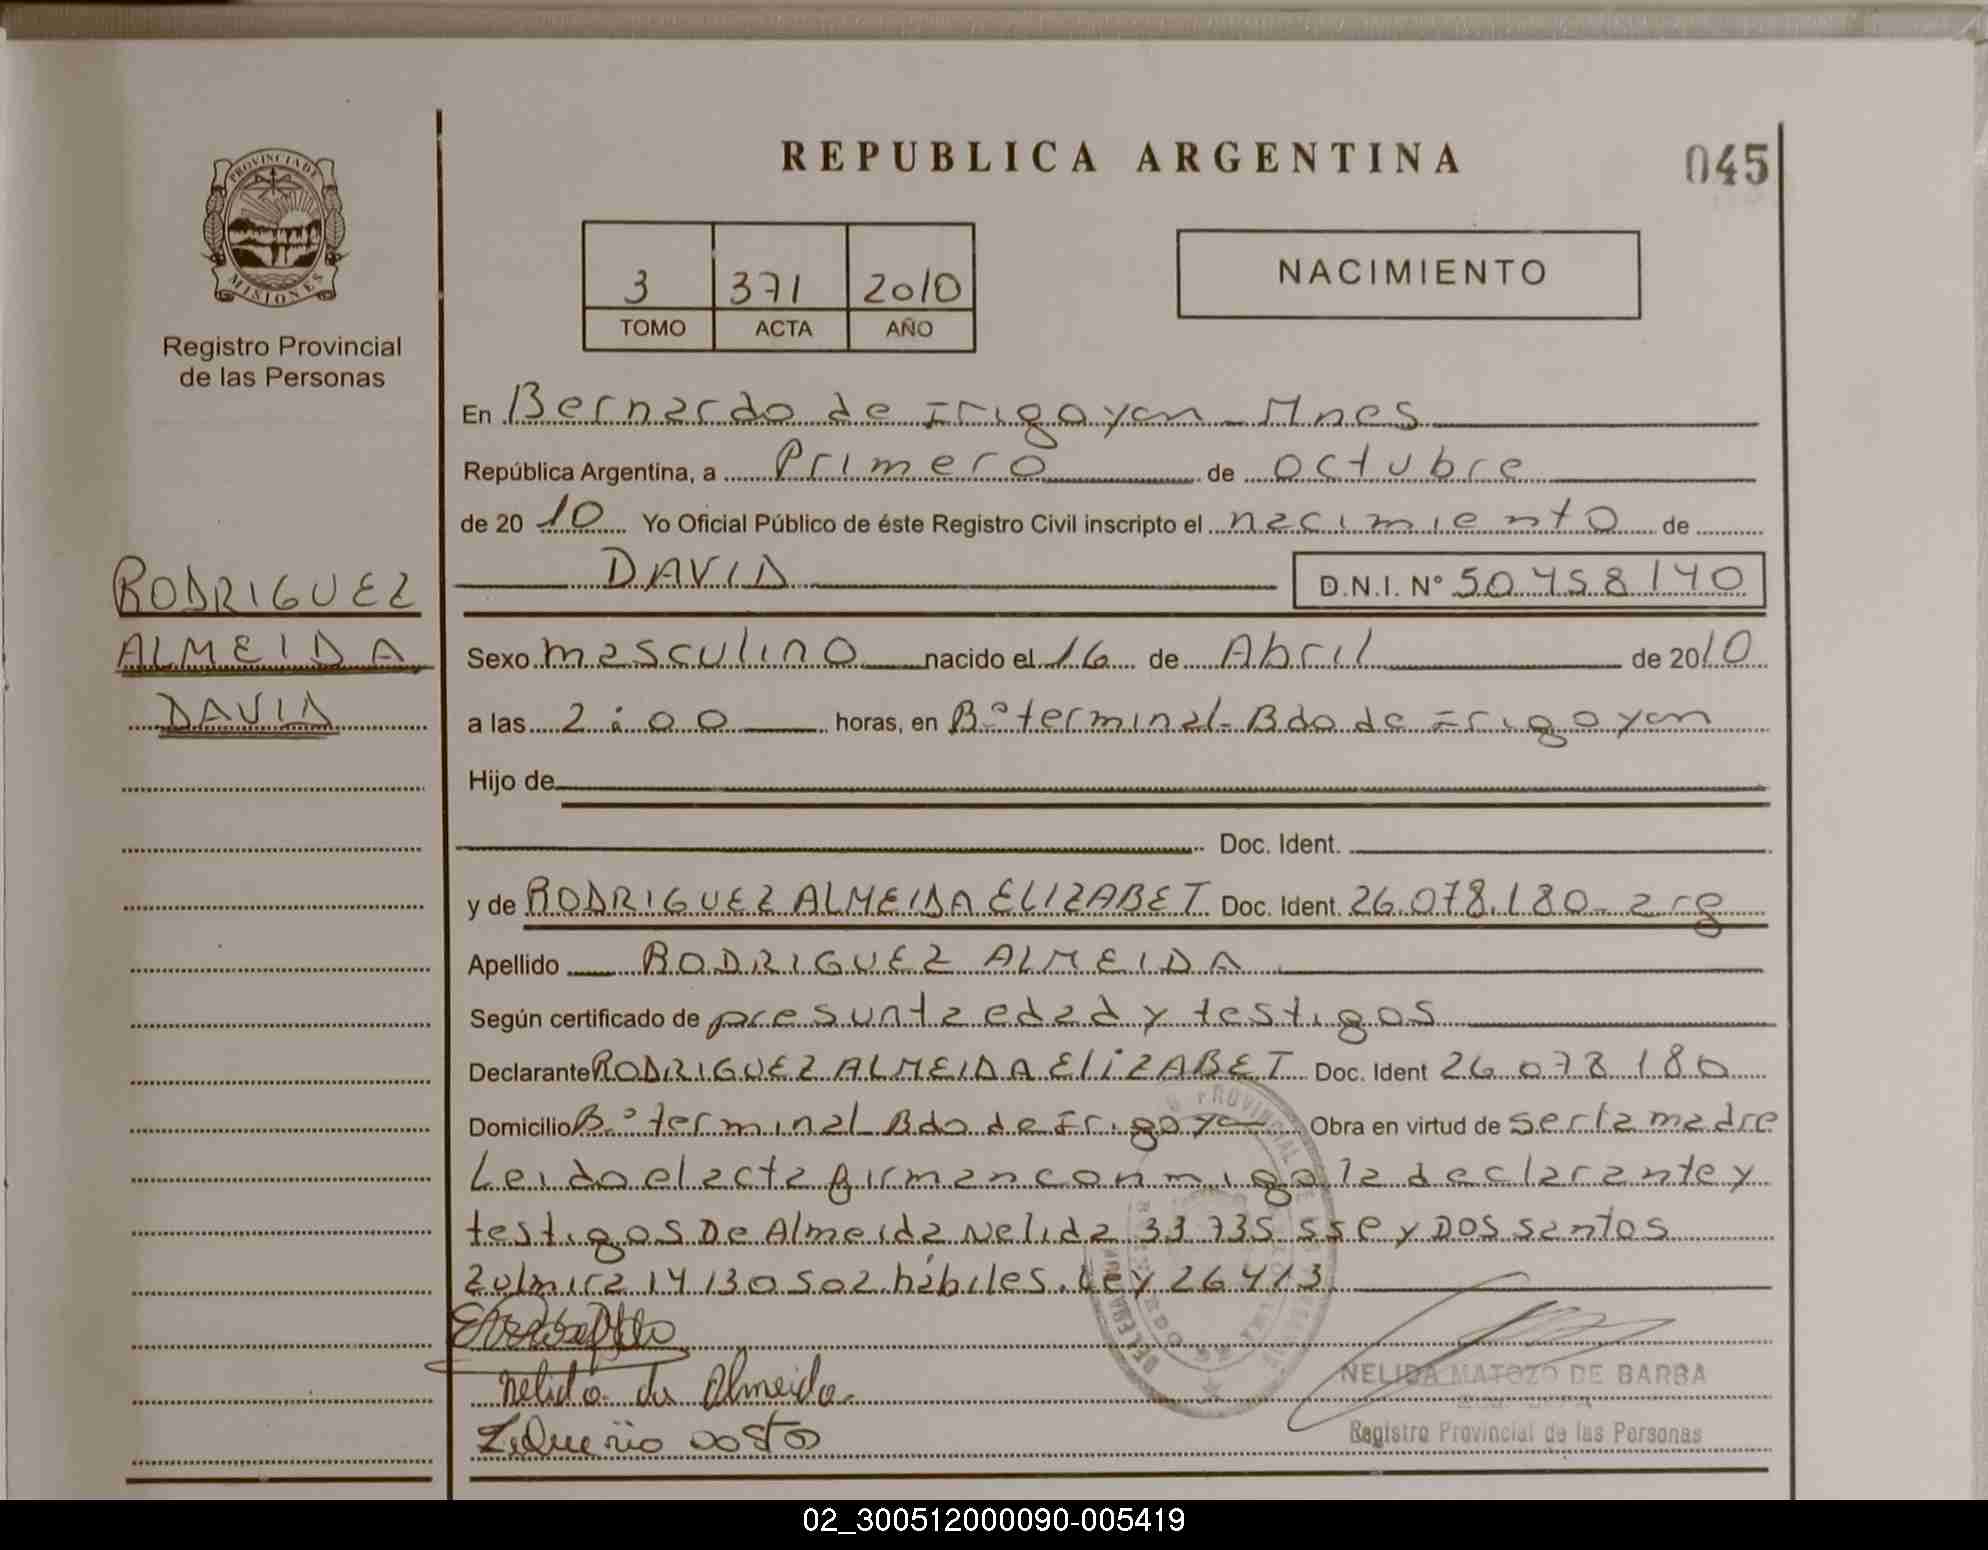 PROVINCIA DE
MISIONES
Registro Provincial
de las Personas
REPUBLICA ARGENTINA
045
3 371 2010
TOMO ACTA AÑO
NACIMIENTO
En Bernardo de Irigoyen - Mnes
República Argentina, a Primero de octubre
de 2010 Yo Oficial Público de éste Registro Civil inscripto el nacimiento de
DAVID D.N.I. Nº 50.458.140
RODRIGUEZ
ALMEIDA
DAVID
Sexo masculino nacido el 16 de Abril de 2010
a las 2:00 horas, en Bº terminal - Bdo de Irigoyen
Hijo de
Doc. Ident.
y de RODRIGUEZ ALMEIDA ELIZABET Doc. Ident. 26.078.180 - arg
Apellido RODRIGUEZ ALMEIDA
Según certificado de presunta edad y testigos
Declarante RODRIGUEZ ALMEIDA ELIZABET Doc. Ident 26 078 180
Domicilio Bº terminal Bdo de Irigoyen Obra en virtud de ser la madre
Leido el acta firman conmigo la declarante y
testigos De Almeida Nelida 33 735 55 y DOS santos
Zulmira 14 130 502 hábiles. Ley 26413
Nelida de Almeida
NELIDA MATOZO DE BARBA
Registro Provincial de las Personas
02_300512000090-005419